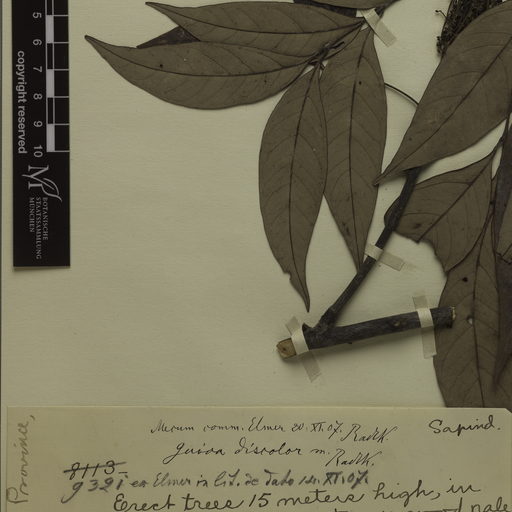 5
6
7
8
9
10
copyright reserved
BOTANISCHE
STAATSSAMMLUNG
MÜNCHEN
Mecum comm. Elmer 20. XI. 07. Radlk.
Sapind.
Guioa discolor m.
Radlk.
8113
9321 ex Elmer in lit. de dato 12. XI. 07.
Province,
Erect trees 15 meters high, in